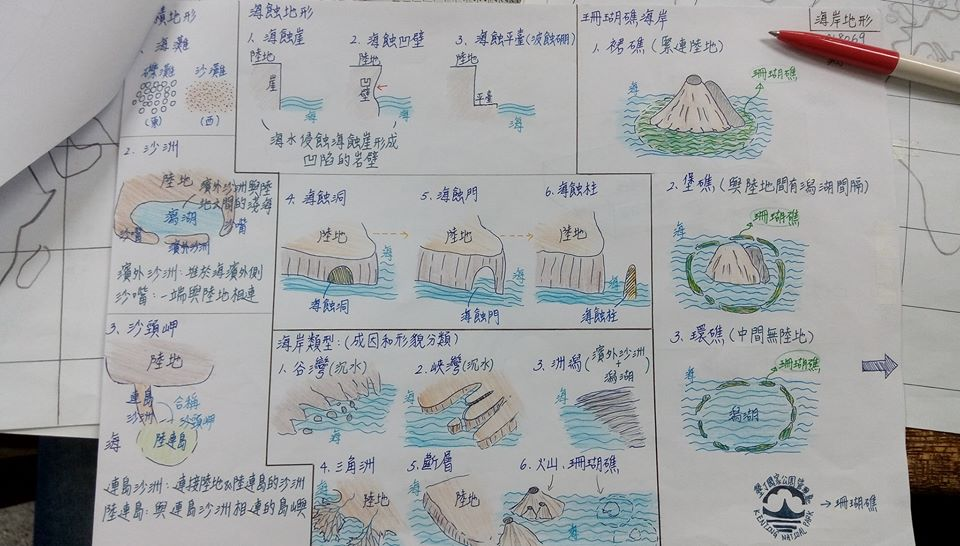 積地形
1. 海灘
礫灘
沙灘
(東)
(西)
2. 沙洲
陸地
濱外沙洲與陸
地之間的淺海
潟湖
沙嘴
沙嘴
濱外沙洲
濱外沙洲:堆於海濱外側
沙嘴:一端與陸地相連
3. 沙頸岬
陸地
連島
沙洲
合稱
沙頸岬
海
陸連島
連島沙洲:連接陸地&陸連島的沙洲
陸連島:與連島沙洲相連的島嶼
海蝕地形
1. 海蝕崖
陸地
崖
海
2. 海蝕凹壁
陸地
凹
壁
海
3. 海蝕平臺(波蝕棚)
陸地
平臺
海
海水侵蝕海蝕崖形成
凹陷的岩壁
4. 海蝕洞
陸地
海
海蝕洞
5. 海蝕門
陸地
海
海蝕門
6. 海蝕柱
陸地
海
海蝕柱
海岸類型:(成因和形貌分類)
1. 谷灣(沉水)
海
2. 峽灣(沉水)
海
3. 洲潟(濱外沙洲
+
潟湖)
海
4. 三角洲
陸地
5. 斷層
陸地
海
6. 火山、珊瑚礁
海
珊瑚礁海岸
海岸地形
1. 裙礁(緊連陸地)
珊瑚礁
海
2. 堡礁(與陸地間有潟湖間隔)
珊瑚礁
海
3. 環礁(中間無陸地)
珊瑚礁
海
潟湖
墾丁國家公園管理處
KENTING NATIONAL PARK
→珊瑚礁